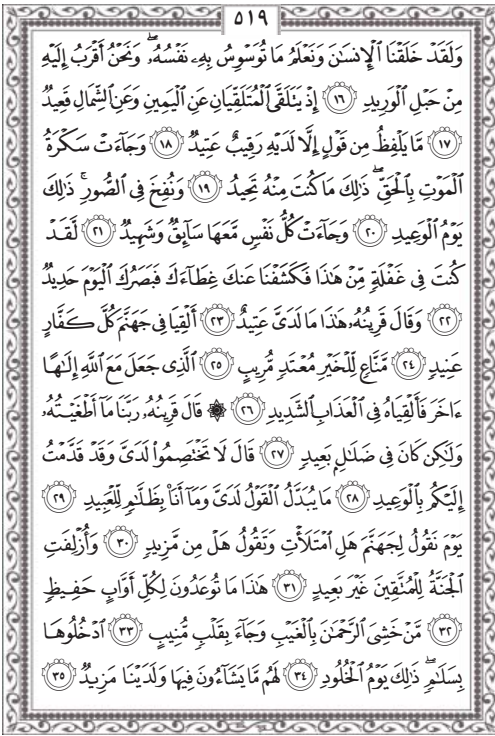 ٥١٩
وَلَقَدْ خَلَقْنَا ٱلْإِنسَـٰنَ وَنَعْلَمُ مَا تُوَسْوِسُ بِهِۦ نَفْسُهُۥ ۖ وَنَحْنُ أَقْرَبُ إِلَيْهِ
مِنْ حَبْلِ ٱلْوَرِيدِ ١٦ إِذْ يَتَلَقَّى ٱلْمُتَلَقِّيَانِ عَنِ ٱلْيَمِينِ وَعَنِ ٱلشِّمَالِ قَعِيدٌ
١٧ مَّا يَلْفِظُ مِن قَوْلٍ إِلَّا لَدَيْهِ رَقِيبٌ عَتِيدٌ ١٨ وَجَآءَتْ سَكْرَةُ
ٱلْمَوْتِ بِٱلْحَقِّ ۖ ذَٰلِكَ مَا كُنتَ مِنْهُ تَحِيدُ ١٩ وَنُفِخَ فِى ٱلصُّورِ ۚ ذَٰلِكَ
يَوْمُ ٱلْوَعِيدِ ٢٠ وَجَآءَتْ كُلُّ نَفْسٍ مَّعَهَا سَآئِقٌ وَشَهِيدٌ ٢١ لَّقَدْ
كُنتَ فِى غَفْلَةٍ مِّنْ هَـٰذَا فَكَشَفْنَا عَنكَ غِطَآءَكَ فَبَصَرُكَ ٱلْيَوْمَ حَدِيدٌ
٢٢ وَقَالَ قَرِينُهُۥ هَـٰذَا مَا لَدَىَّ عَتِيدٌ ٢٣ أَلْقِيَا فِى جَهَنَّمَ كُلَّ كَفَّارٍ
عَنِيدٍ ٢٤ مَّنَّاعٍ لِّلْخَيْرِ مُعْتَدٍ مُّرِيبٍ ٢٥ ٱلَّذِى جَعَلَ مَعَ ٱللَّهِ إِلَـٰهًا
ءَاخَرَ فَأَلْقِيَاهُ فِى ٱلْعَذَابِ ٱلشَّدِيدِ ٢٦ ۞ قَالَ قَرِينُهُۥ رَبَّنَا مَآ أَطْغَيْتُهُۥ
وَلَـٰكِن كَانَ فِى ضَلَـٰلٍۭ بَعِيدٍ ٢٧ قَالَ لَا تَخْتَصِمُوا۟ لَدَىَّ وَقَدْ قَدَّمْتُ
إِلَيْكُم بِٱلْوَعِيدِ ٢٨ مَا يُبَدَّلُ ٱلْقَوْلُ لَدَىَّ وَمَآ أَنَا۠ بِظَلَّـٰمٍ لِّلْعَبِيدِ ٢٩
يَوْمَ نَقُولُ لِجَهَنَّمَ هَلِ ٱمْتَلَأْتِ وَتَقُولُ هَلْ مِن مَّزِيدٍ ٣٠ وَأُزْلِفَتِ
ٱلْجَنَّةُ لِلْمُتَّقِينَ غَيْرَ بَعِيدٍ ٣١ هَـٰذَا مَا تُوعَدُونَ لِكُلِّ أَوَّابٍ حَفِيظٍ
٣٢ مَّنْ خَشِىَ ٱلرَّحْمَـٰنَ بِٱلْغَيْبِ وَجَآءَ بِقَلْبٍ مُّنِيبٍ ٣٣ ٱدْخُلُوهَا
بِسَلَـٰمٍ ۖ ذَٰلِكَ يَوْمُ ٱلْخُلُودِ ٣٤ لَهُم مَّا يَشَآءُونَ فِيهَا وَلَدَيْنَا مَزِيدٌ ٣٥